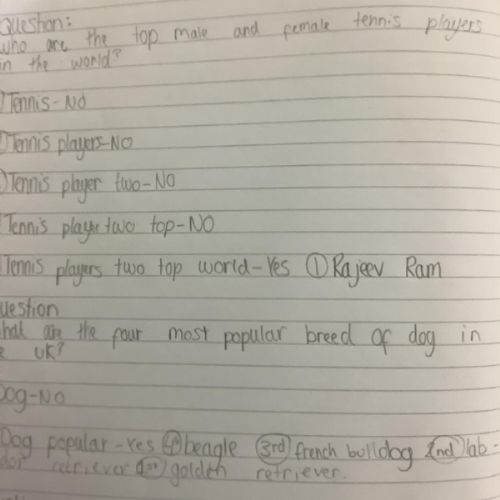 Question:
who are the top male and female tennis players
in the world?
Tennis-No
Tennis players-NO
Tennis player two-NO
Tennis player two top-NO
Tennis players two top world-Yes ① Rajeev Ram
uestion
hat are the four most popular breed of dog in
e UK?
Dog-NO
Dog popular-Yes 4th beagle 3rd french bulldog 2nd lab-
dor retriever 1st golden retriever.